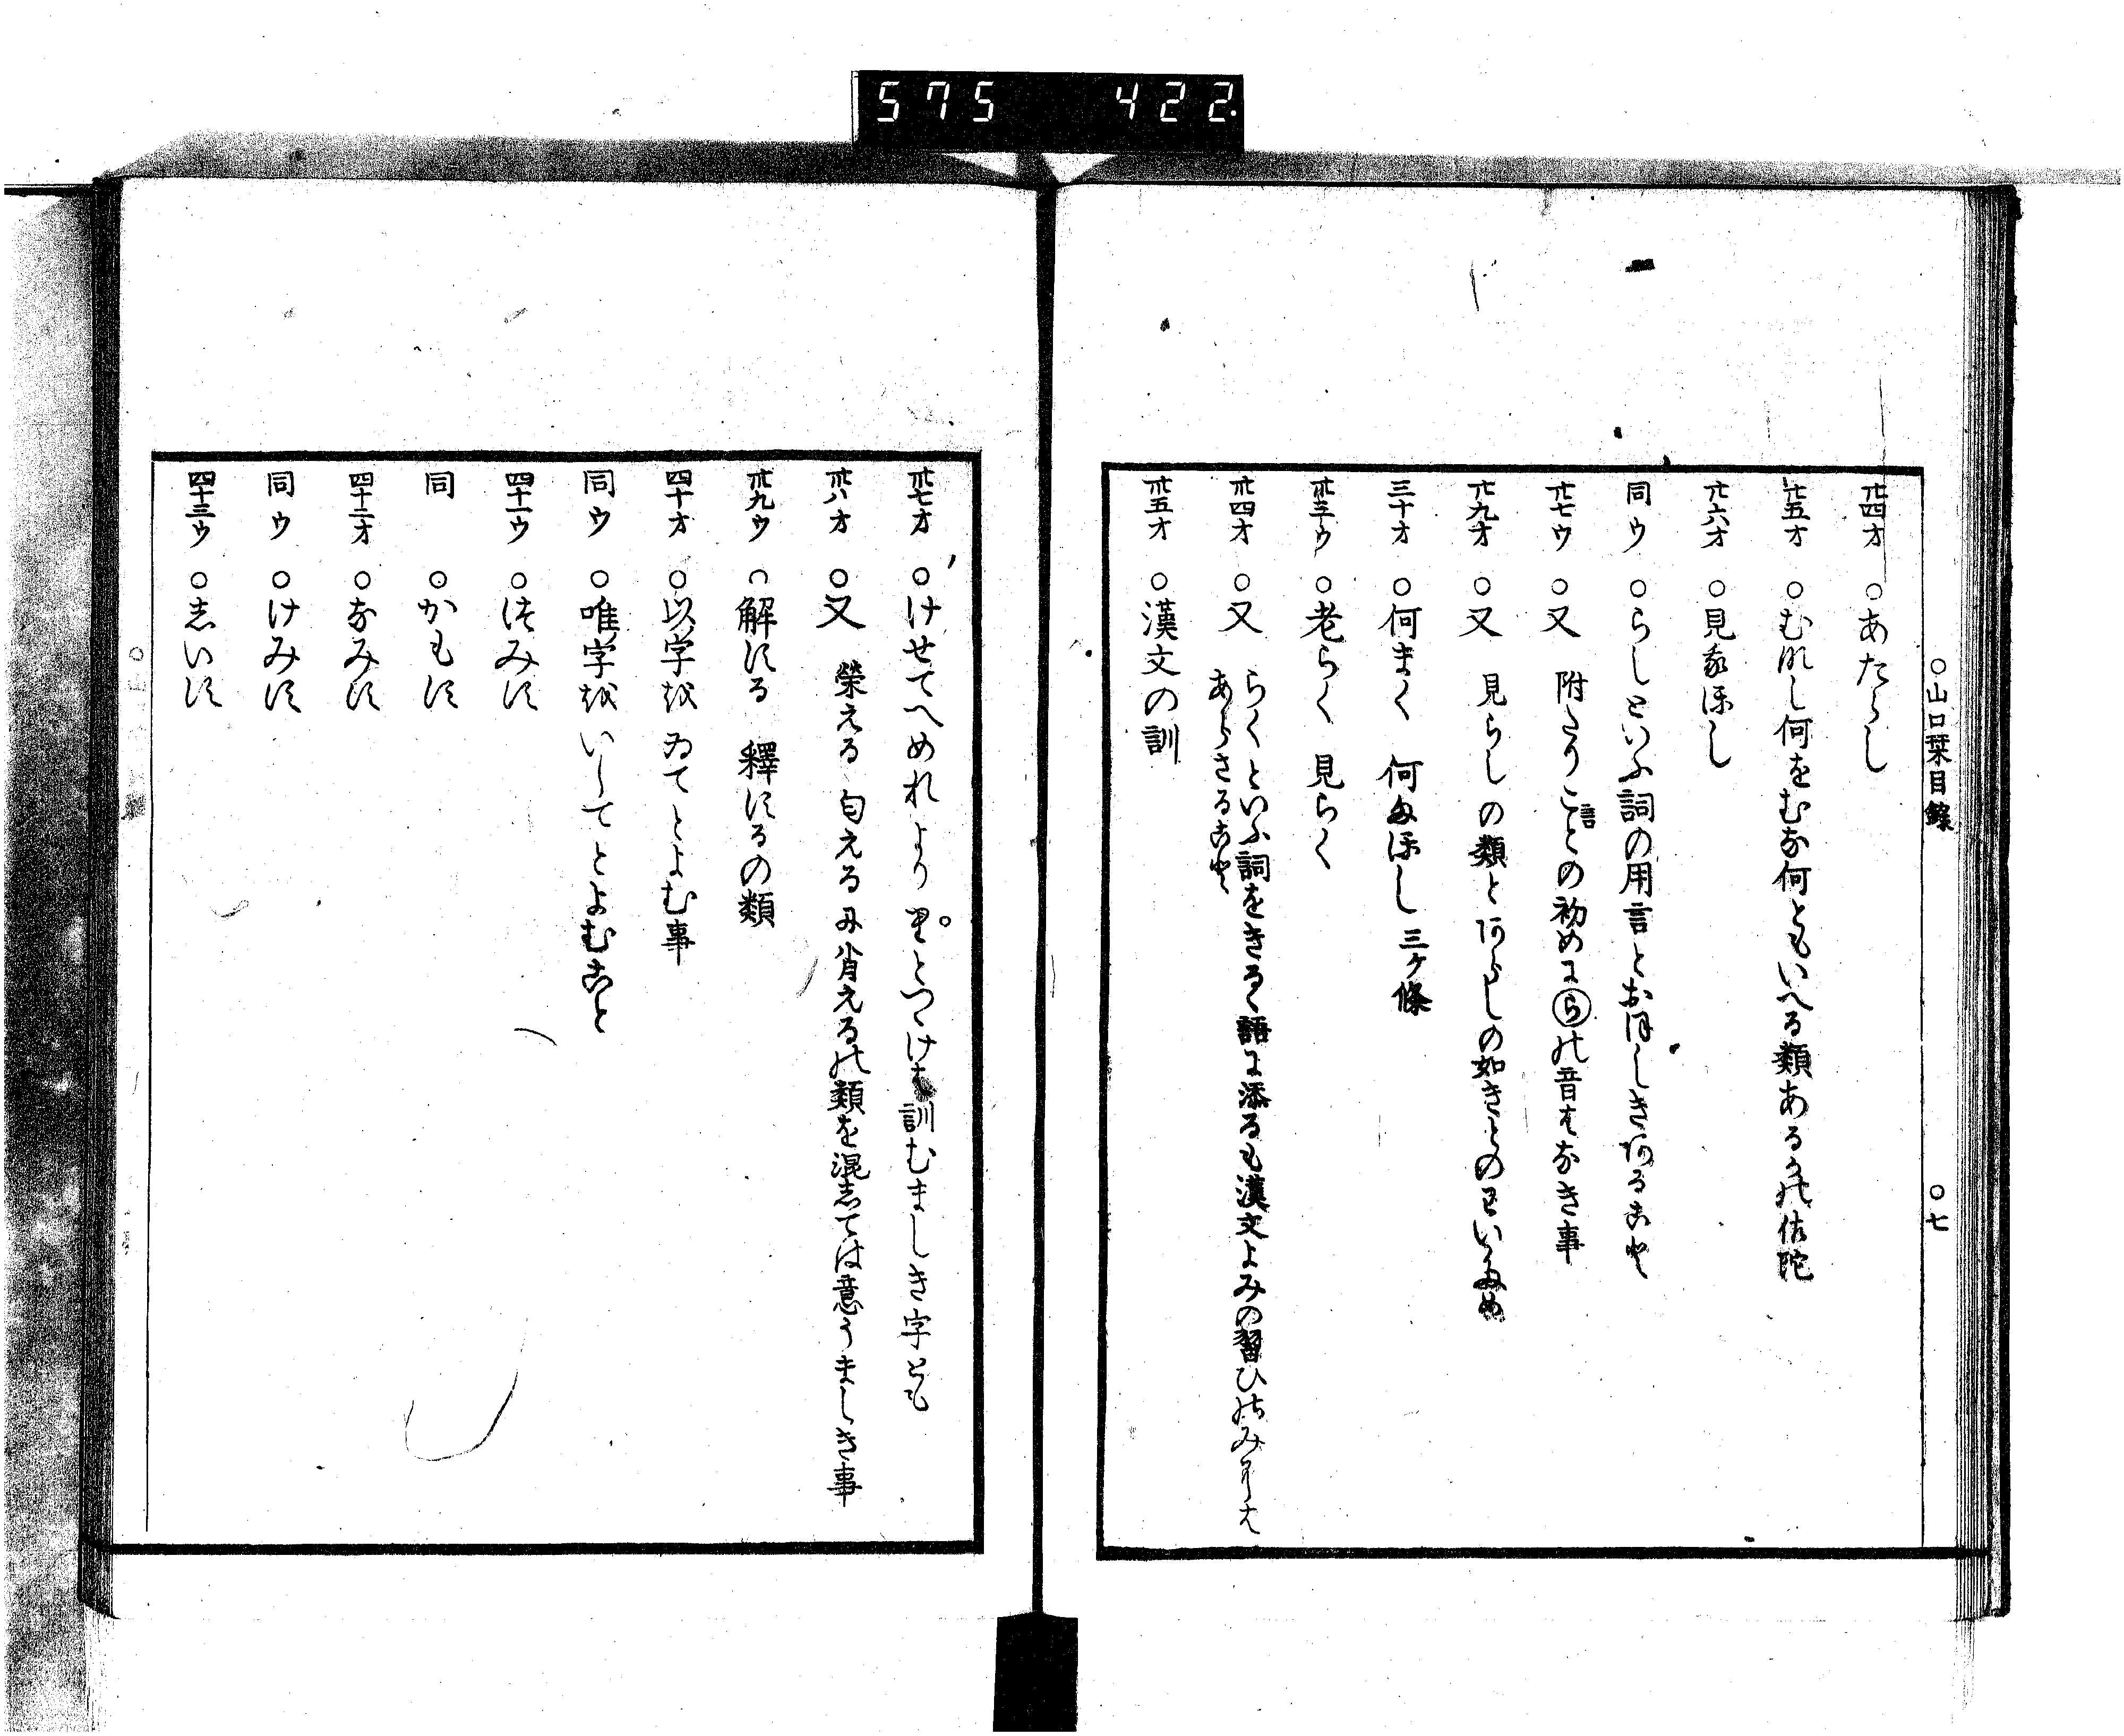 575 422.
○山口栞目録 ○七
廿四オ ○あたらし
廿五オ ○むなし何をむな何ともいへる類あるかの佐陀
廿六オ ○見まほし
同ウ ○らしといふ詞の用言とおほしきかあること
廿七ウ ○又 附たりこと言の初めにらの音はなき事
廿九オ ○又 見らしの類とあらしの如きとの
三十オ ○何まく 何まほし 三ケ條
卅三ウ ○老らく 見らく
卅四オ ○又 らくといふ詞をきるゝ語に添るも漢文よみの習ひのみには
あらさること
卅五オ ○漢文の訓
卅七オ ○けせてへめれより りとつゝけは訓むましき字とも
卅八オ ○又 榮える 匂える 及ハ肖える の類を混しては意うましき事
卅九ウ ○解する 釋するの類
四十オ ○以字を ゐてとよむ事
同ウ ○唯字を いしてとよむこと
四十一ウ ○ほみす
同 ○かもす
四十二オ ○なみす
同ウ ○けみす
四十三ウ ○しいす